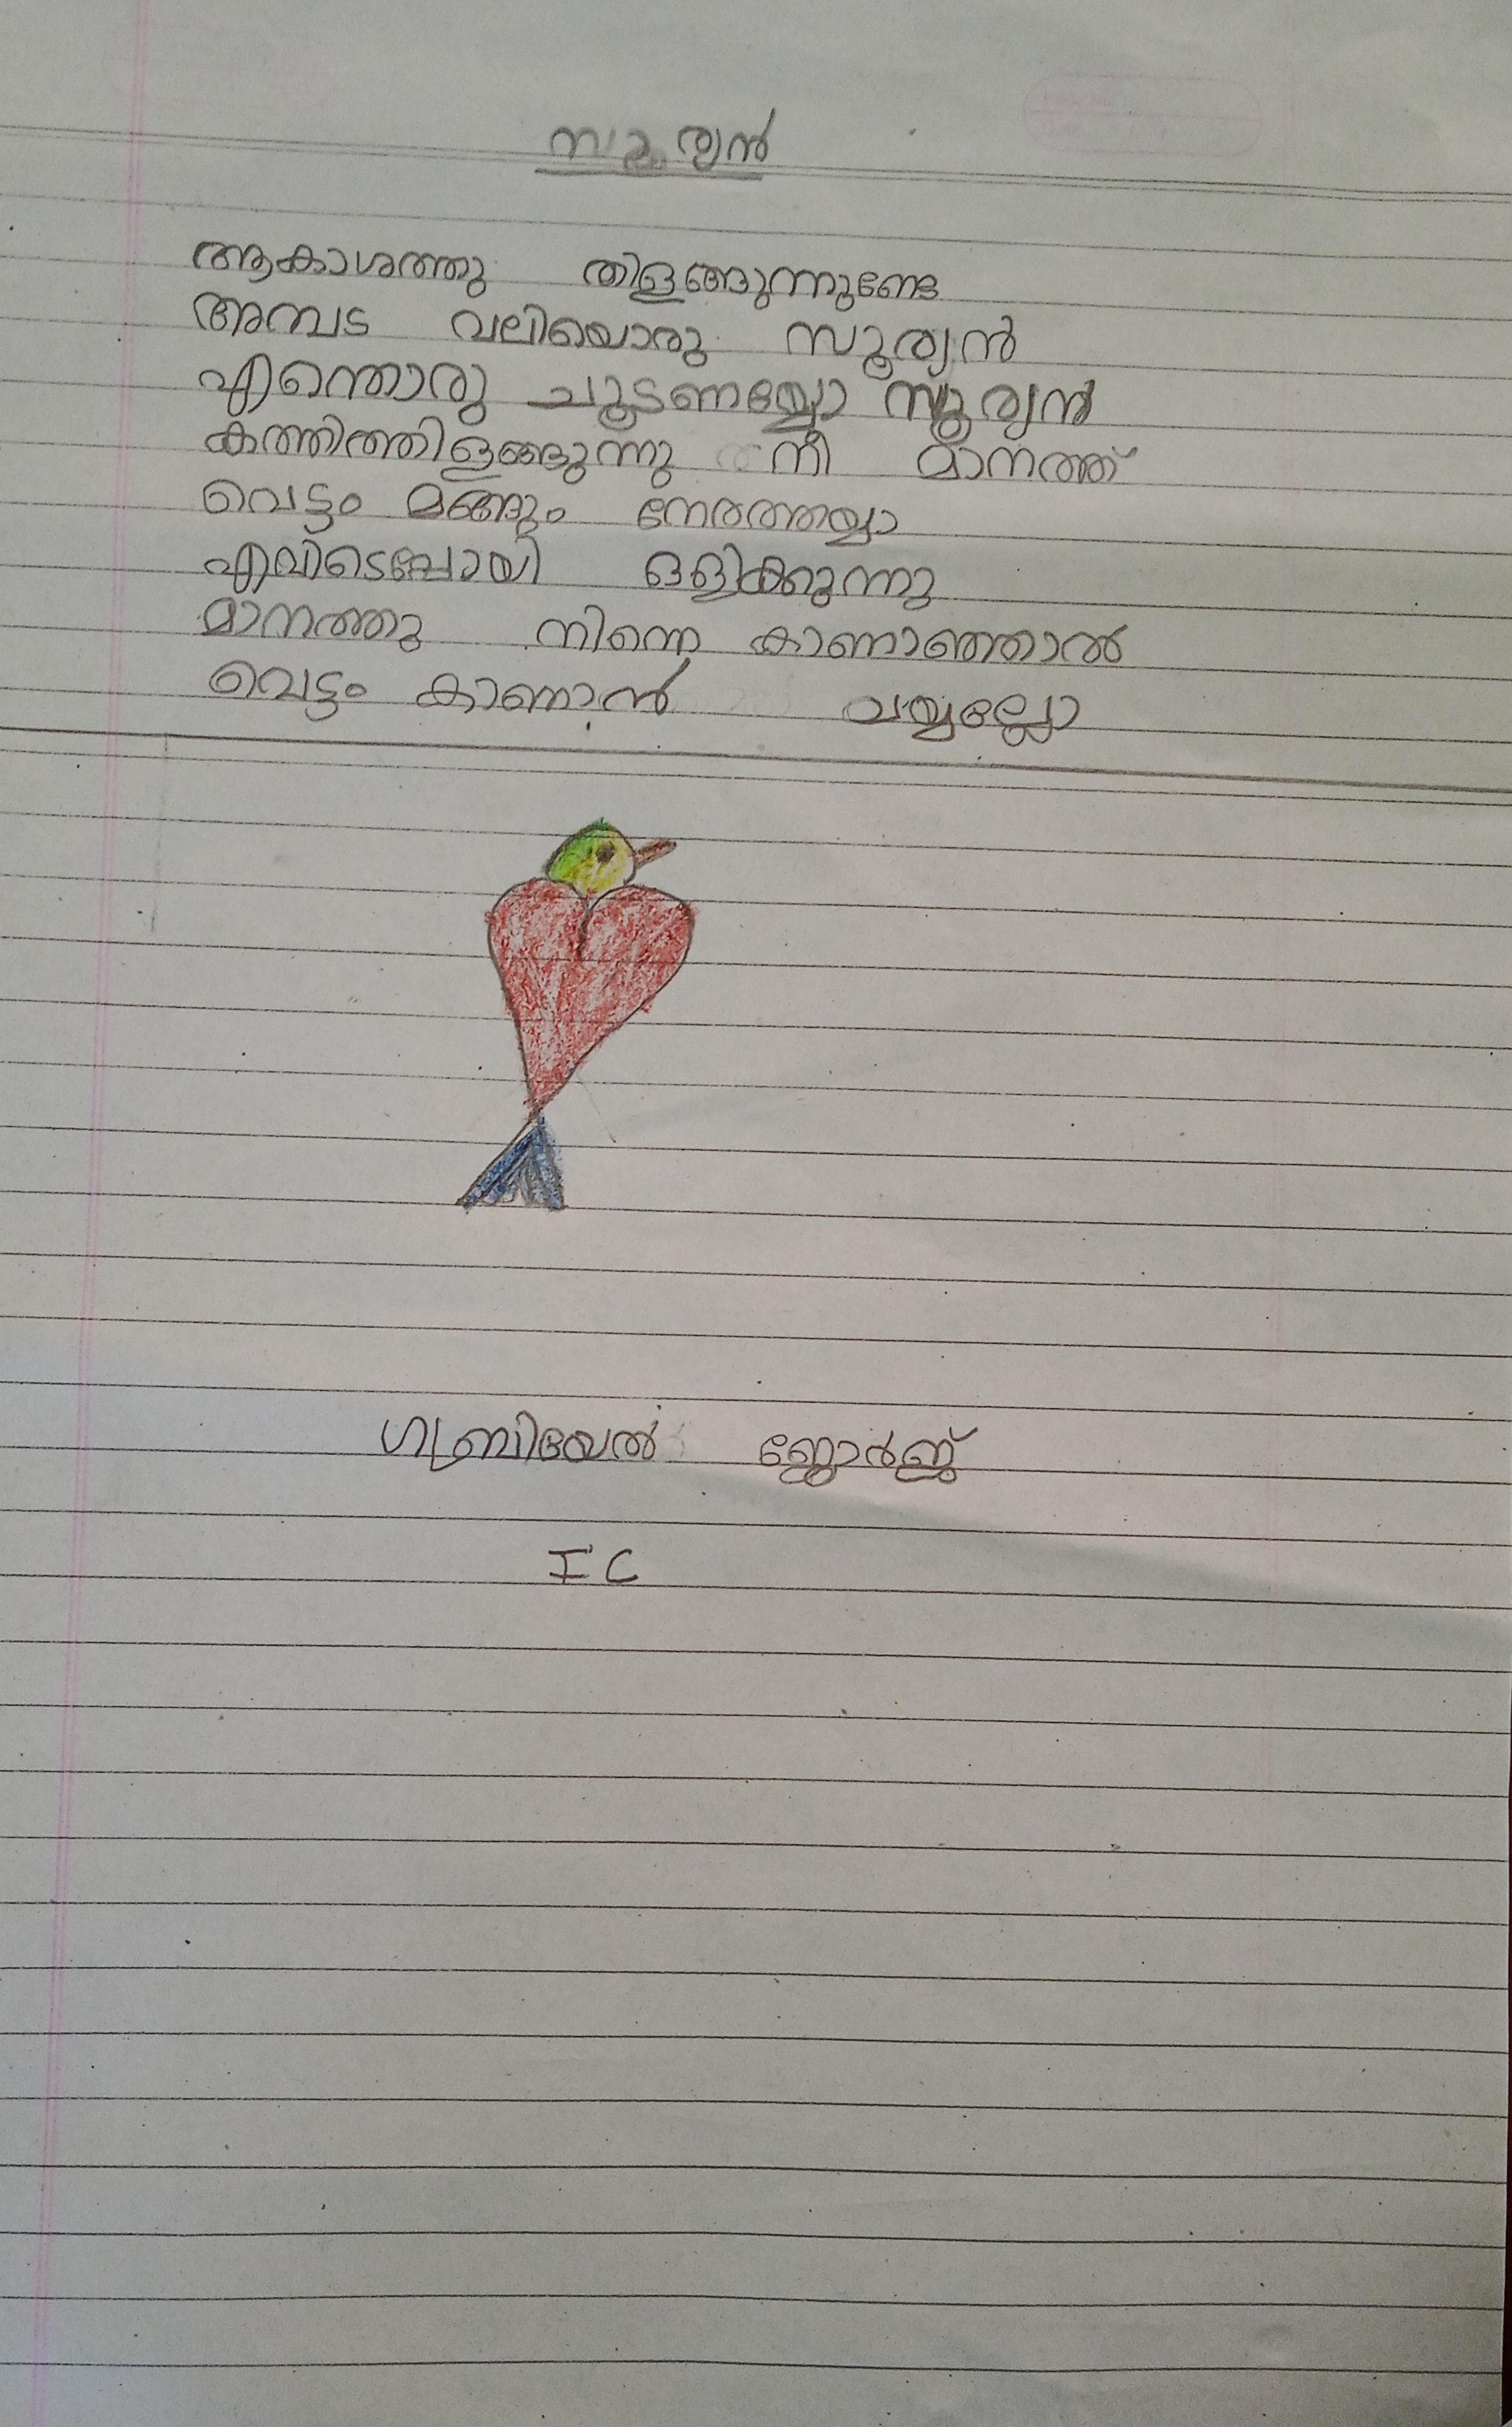 സൂര്യൻ
ആകാശത്തു തിളങ്ങുന്നുണ്ടേ
അമ്പട വലിയൊരു സൂര്യൻ
എന്തൊരു ചൂടണയ്യോ സൂര്യൻ
കത്തിത്തിളങ്ങുന്നു നീ മാനത്ത്
വെട്ടം മങ്ങും നേരത്തയ്യാ
എവിടെപ്പോയി ഒളിക്കുന്നു
മാനത്തു നിന്നെ കാണാഞ്ഞാൽ
വെട്ടം കാണാൻ വയ്യല്ലോ
ഗബ്രിയേൽ ജോർജ്
I C